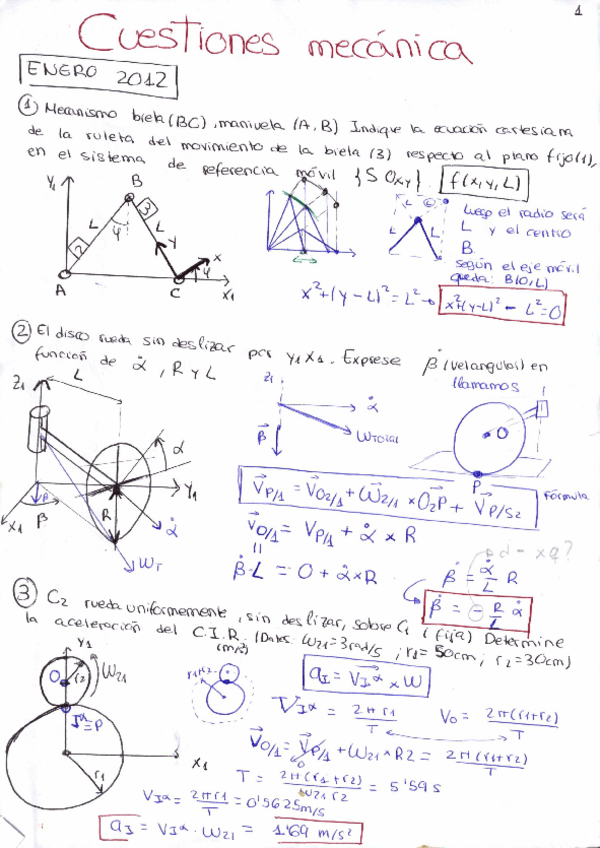 1
Cuestiones mecánica
ENERO 2012
① Mecanismo biela (BC), manivela (A, B) Indique la ecuación cartesiana
de la ruleta del movimiento de la biela (3) respecto al plano fijo (1),
en el sistema de referencia móvil {S Oxy}. f(x,y,L)
Y1
B
L
3
L
2
φ
Y
x
φ
A
C
X1
L
L
Luego el radio será
L y el centro
B.
según el eje móvil
queda: B(0,L)
x²+(y-L)²=L² → x²+(y-L)² - L²=0
② El disco rueda sin deslizar por Y1X1. Exprese β̇ (vel angular) en
función de α̇, R y L
llamamos
Z1
L
α
Y1
β
R
X1
β
α̇
WT
Z1
α̇
β̇
WTotal
O
P
V⃗P/1 = V⃗O2/1 + ω⃗2/1 × O2P + V⃗P/S2
Fórmula
V⃗O/1 = VP/1 + α̇ × R
β̇·L = 0 + α̇ × R
β̇ = α̇/L R
β̇ = - R/L α̇
③ C2 rueda uniformemente, sin deslizar, sobre C1 (fija) Determine
la aceleración del C.I.R. (Datos: ω21=3rad/s ; r1=50cm; r2=30cm)
(m/s²)
Y1
O
r2
W21
I=P
X1
r1
r1+r2
aI = V⃗Iα × W
VIα = 2πr1/T
VO = 2π(r1+r2)/T
V⃗O/1 = V⃗P/1 + ω21 × R2 = 2π(r1+r2)/T
0
T = 2π(r1+r2)/ω21 r2 = 5'59 s
VIα = 2πr1/T = 0'5625 m/s
aI = VIα · ω21 = 1'69 m/s²